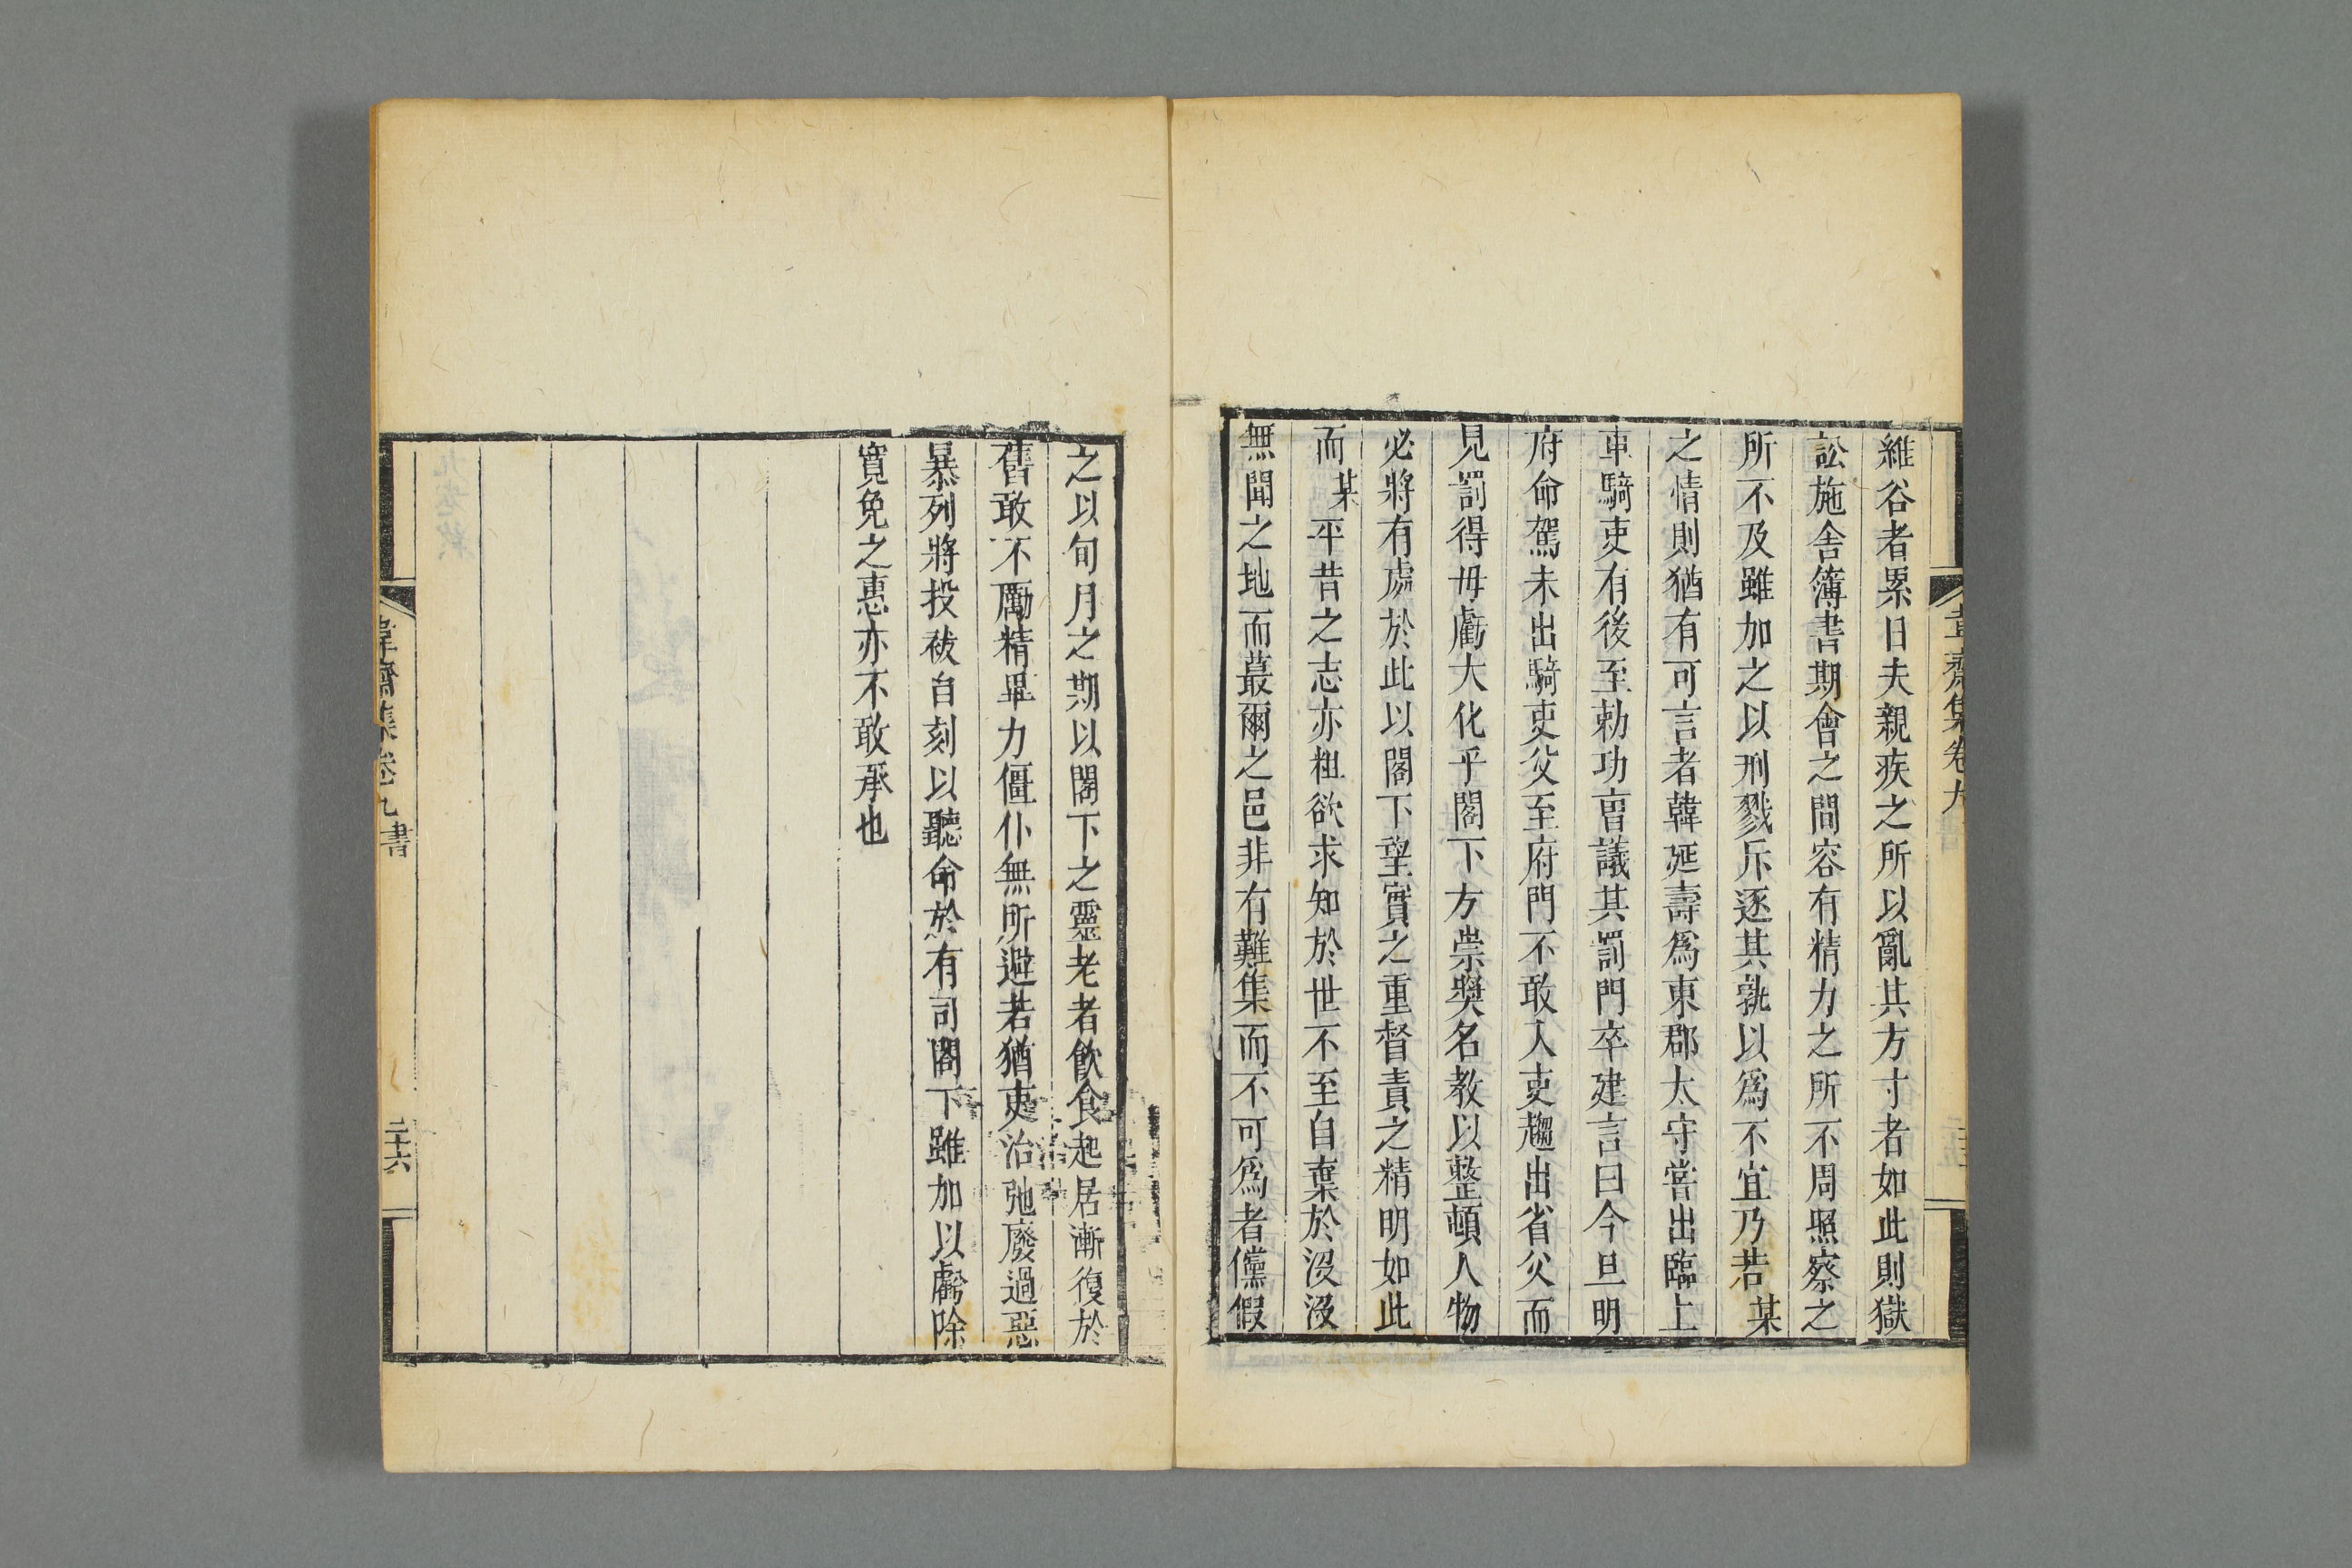 維谷者累日夫親疾之所以亂其方寸者如此則獄
訟施舍簿書期會之間容有精力之所不周照察之
所不及雖加之以刑戮斥逐其孰以爲不宜乃若某
之情則猶有可言者韓延壽爲東郡太守嘗出臨上
車騎吏有後至勅功曹議其罰門卒建言曰今旦明
府命駕未出騎吏父至府門不敢入吏趨出省父而
見罰得毋虧大化乎閣下方崇奬名教以整頓人物
必將有處於此以閣下望實之重督責之精明如此
而某平昔之志亦粗欲求知於世不至自棄於沒沒
無聞之地而蕞爾之邑非有難集而不可爲者儻假
韋齋集卷九
之以旬月之期以閣下之靈老者飮食起居漸復於
舊敢不勵精畢力僵仆無所避若猶吏治弛廢過惡
暴列將投袚自刻以聽命於有司閣下雖加以虧除
寛免之惠亦不敢承也
韋齋集卷九 書
二十六